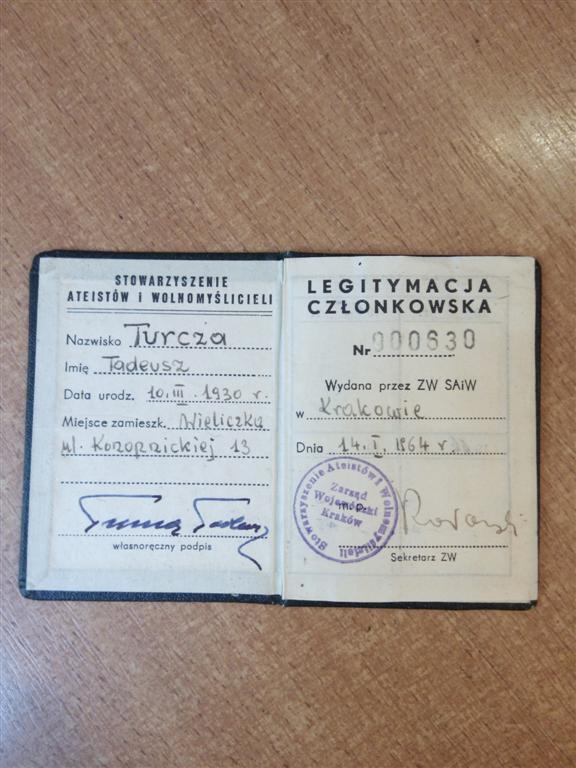 STOWARZYSZENIE
ATEISTÓW i WOLNOMYŚLICIELI
Nazwisko Turcza
Imię Tadeusz
Data urodz. 10.III.1930 r.
Miejsce zamieszk. Wieliczka
ul. 13
własnoręczny podpis
LEGITYMACJA
CZŁONKOWSKA
Nr 000630
Wydana przez ZW SAiW
w Krakowie
Dnia 14.I.1964 r
Stowarzyszenie Ateistów i Wolnomyślicieli
Zarząd
Wojewódzki
Kraków
m.p.
Sekretarz ZW